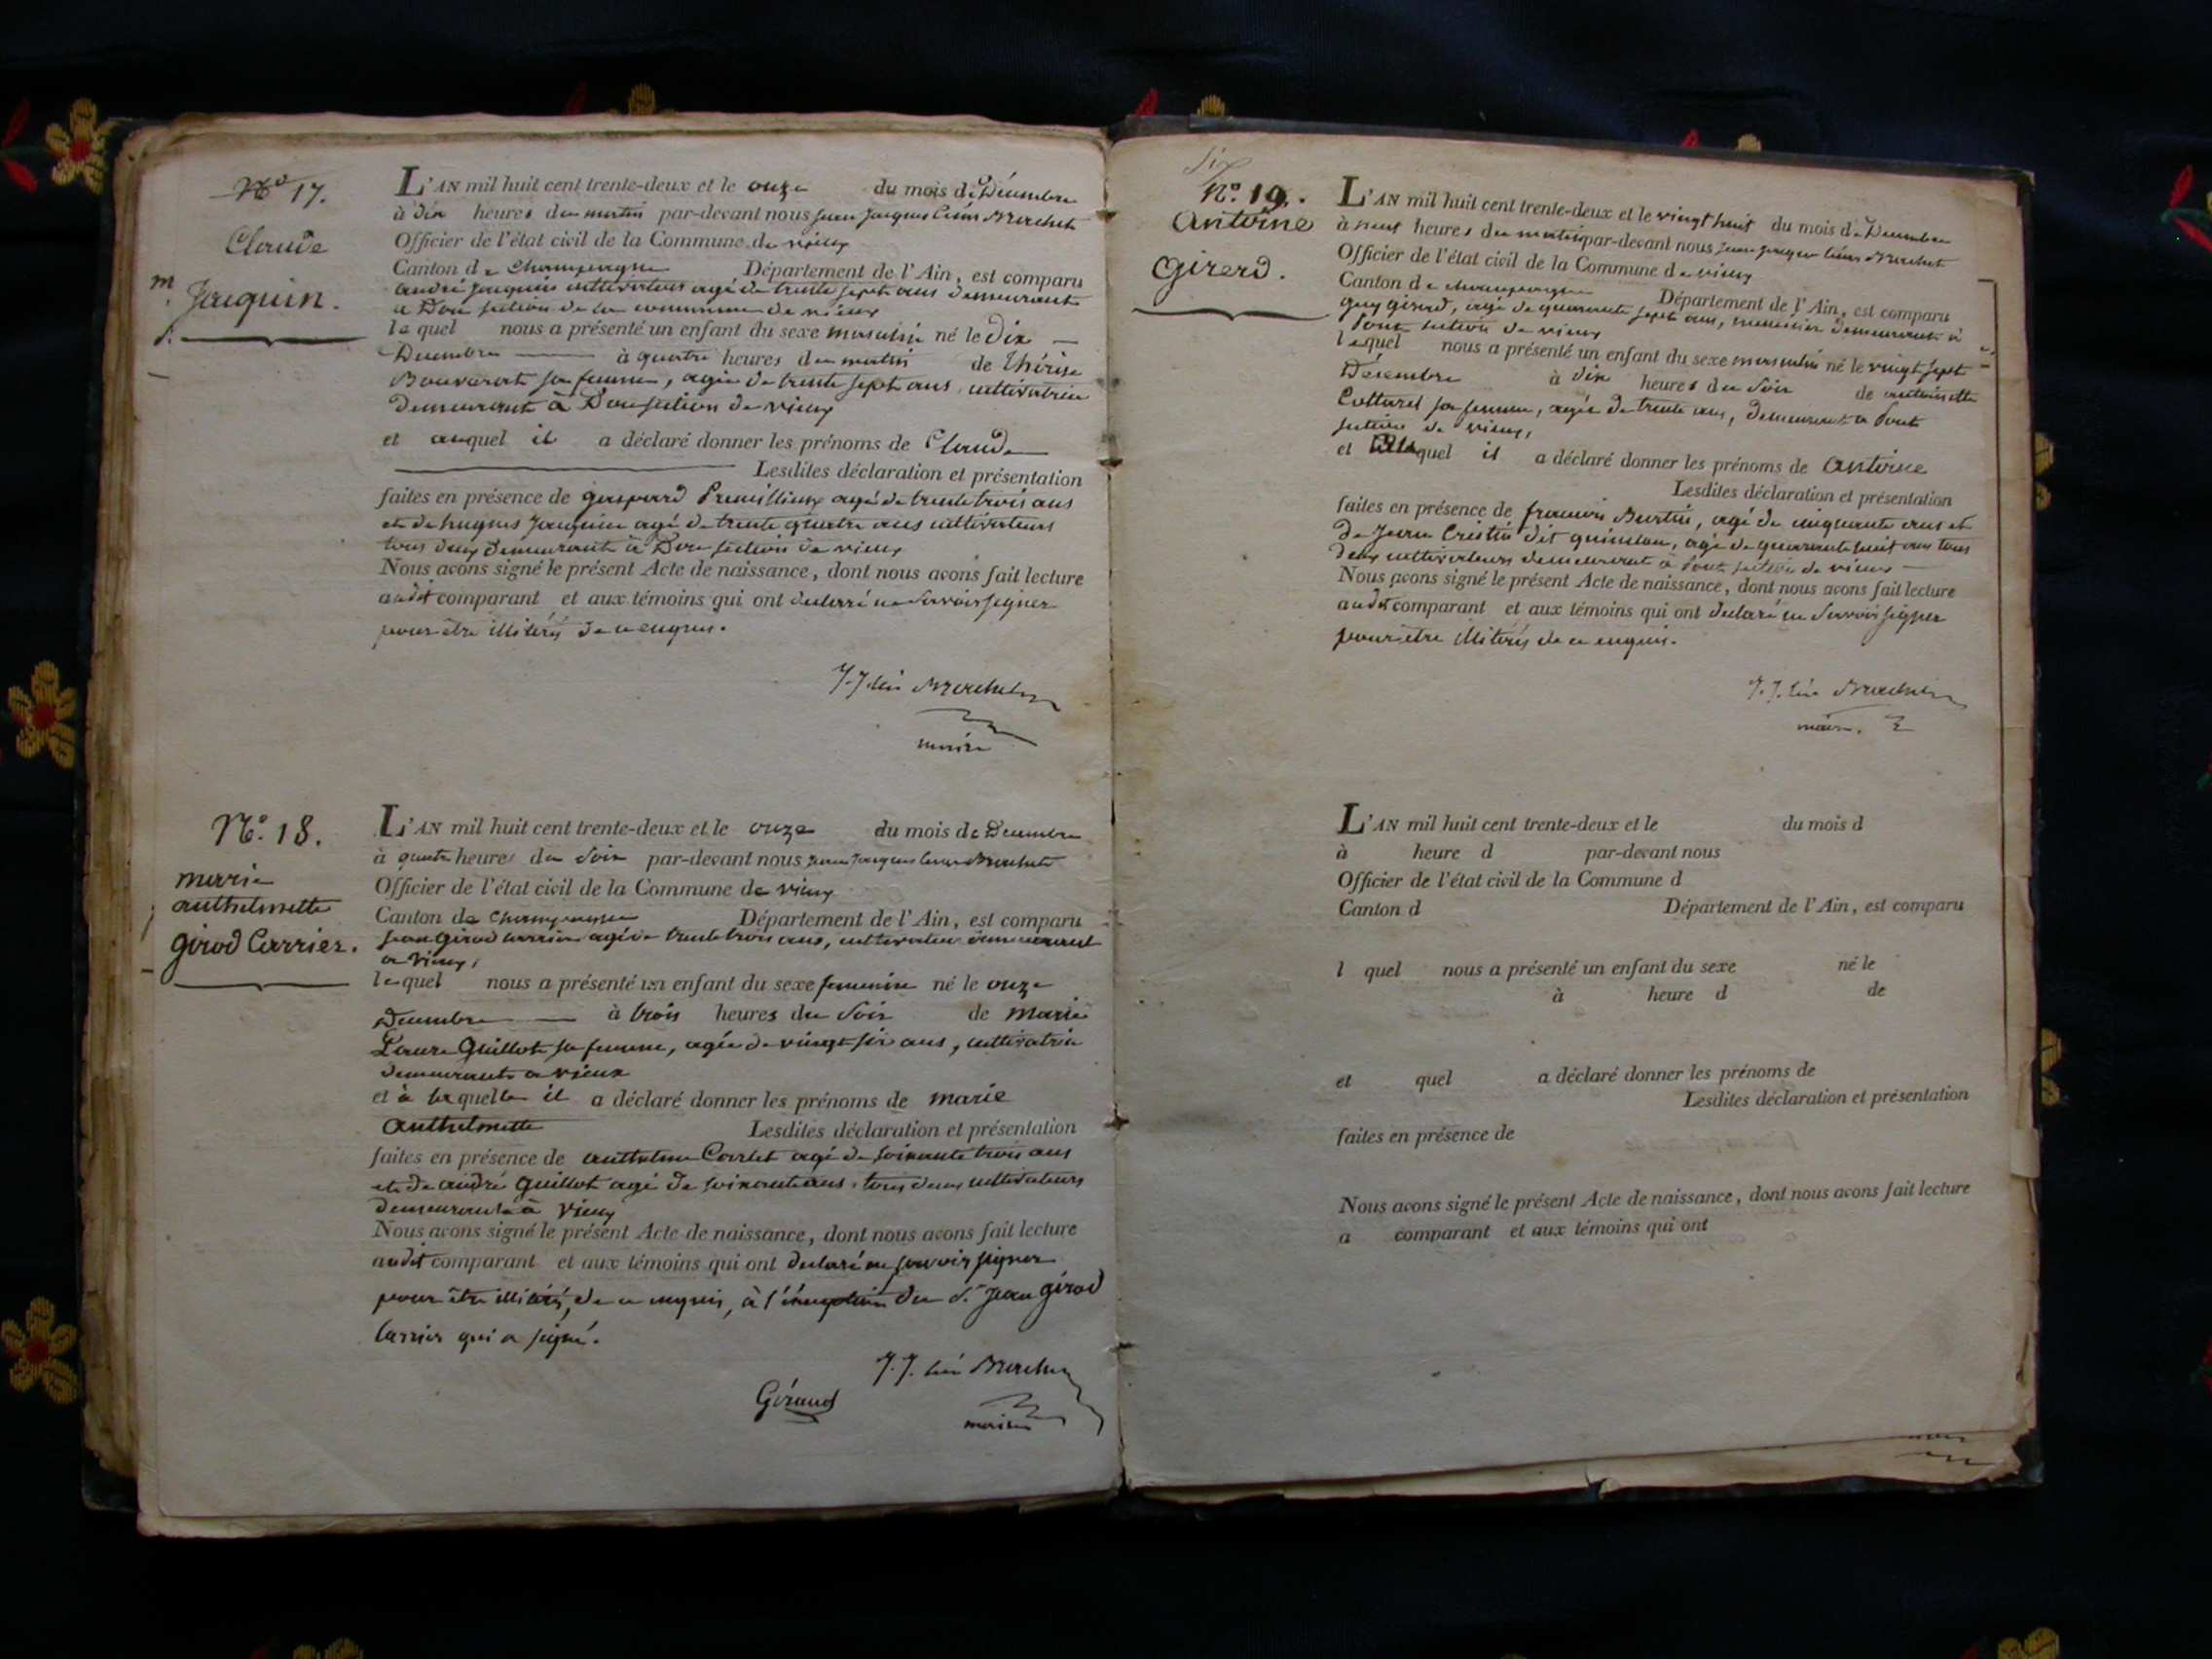 No 17.
Claude
Jaquin.
L'AN mil huit cent trente-deux et le onze du mois de Décembre
à dix heures du matin par-devant nous jean jacques
Officier de l'état civil de la Commune de vieux
Canton de Champagne Département de l'Ain, est comparu
andré jaquin cultivateur agé de trente sept ans demeurant
a Don section de la commune de vieux
le quel nous a présenté un enfant du sexe masculin né le dix
Décembre à quatre heures du matin de thérèse
sa femme, agée de trente sept ans, cultivatrice
demeurant à Don section de vieux
et auquel il a déclaré donner les prénoms de Claude
Lesdites déclaration et présentation
faites en présence de gaspard agé de trente trois ans
et de hugues jaquin agé de trente quatre ans cultivateurs
tous deux demeurant à Don section de vieux
Nous avons signé le présent Acte de naissance, dont nous avons fait lecture
audit comparant et aux témoins qui ont declaré ne savoir signer
pour être illiterés de ce enquis.
J. J.
maire
No. 18.
marie
anthelmette
girod Carrier.
L'AN mil huit cent trente-deux et le onze du mois de Decembre
à quatre heures du soir par-devant nous jean jacques
Officier de l'état civil de la Commune de vieux
Canton de Champagne Département de l'Ain, est comparu
jean girod carrier agé de trente trois ans, cultivateur demeurant
a vieux,
le quel nous a présenté un enfant du sexe feminin né le onze
Decembre à trois heures du soir de marie
Laure Guillot sa femme, agée de vingt six ans, cultivatrice
demeurant a vieux
et à laquelle il a déclaré donner les prénoms de marie
anthelmette Lesdites déclaration et présentation
faites en présence de anthelme agé de soixante trois ans
et de andré guillot agé de soixante ans, tous deux cultivateurs
demeurant à vieux
Nous avons signé le présent Acte de naissance, dont nous avons fait lecture
audit comparant et aux témoins qui ont declaré ne savoir signer
pour être illiterés, de ce enquis, à l'exception du Sr. jean girod
carrier qui a signé.
J. J.
Géraud
maire
No. 19.
antoine
girerd.
L'AN mil huit cent trente-deux et le vingt huit du mois de Decembre
à neuf heures du matin par-devant nous jean jacques
Officier de l'état civil de la Commune de vieux
Canton de champagne Département de l'Ain, est comparu
guy girerd, agé de quarante sept ans, demeurant à
section de vieux
lequel nous a présenté un enfant du sexe masculin né le vingt sept
Décembre à dix heures du soir de antoinette
sa femme, agée de trente ans, demeurant a
section de vieux,
et quel il a déclaré donner les prénoms de antoine
Lesdites déclaration et présentation
faites en présence de françois Burtin, agé de cinquante ans et
de dit agé de quarante huit ans tous
deux cultivateurs demeurant à section de vieux
Nous avons signé le présent Acte de naissance, dont nous avons fait lecture
audit comparant et aux témoins qui ont declaré ne savoir signer
pour être illiterés de ce enquis.
J. J.
maire.
L'AN mil huit cent trente-deux et le du mois d
à heure d par-devant nous
Officier de l'état civil de la Commune d
Canton d Département de l'Ain, est comparu
l quel nous a présenté un enfant du sexe né le
à heure d de
et quel a déclaré donner les prénoms de
Lesdites déclaration et présentation
faites en présence de
Nous avons signé le présent Acte de naissance, dont nous avons fait lecture
a comparant et aux témoins qui ont